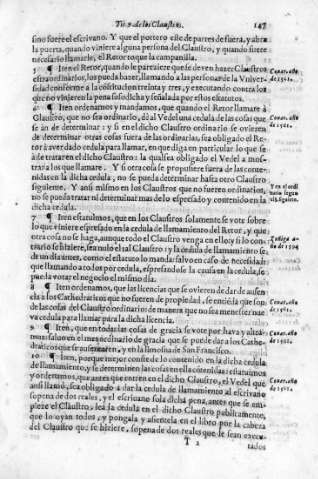 Tit. 9. de los Claustros. 147
sino fuere el escrivano. Y que el portero este de partes de fuera, y abra
la puerta, quando viniere alguna persona del Claustro, y quando fuere
necessario llamarle, el Retor toque la campanilla.
5 ¶ Iten el Retor, quando le pareciere que se deven hazer Claustros
extraordinarios, los pueda hazer, llamando a las personas de la Univer
sidad conforme a la constitucion treinta y tres, y executando contra los
que no vinieren la pena susodicha y señalada por estos estatutos.
6 ¶ Iten ordenamos y mandamos, que quando el Retor llamare à
Claustro, que no sea ordinario, dè al Vedel una cedula de las cosas que
se àn de determinar: y si en el dicho Claustro ordinario se oviere
de determinar otras cosas fuera de las ordinarias, sea obligado el Re-
tor à aver dado cedula para llamar, en que diga en particular lo que se
à de tratar en el dicho Claustro: la qual sea obligado el Vedel a mos-
trar a los que llamare. Y si otra cosa se propusiere fuera de las conte-
nidas en la dicha cedula, no se pueda determinar hasta otro Claustro
siguiente. Y ansi mismo en los Claustros que no fueren ordinarios,
no se pueda tratar ni determinar mas de lo espresado y contenido en la
dicha cedula.
7 ¶ Iten estatuimos, que en los Claustros solamente se vote sobre
lo que viniere espresado en la cedula de llamamiento del Retor, y que
otra cosa no se haga, aunque todo el Claustro venga en ello: y si lo con-
trario se hiziere, sea nulo el tal Claustro: y la cedula de llamamiento se
dè un dia antes, como el estatuto lo manda: salvo en caso de necesidad:
que llamando a todos por cedula, espresandose la causa en la cedula, se
pueda votar el negocio el mismo dia.
8 ¶ Iten ordenamos, que las licencias que se ovieren de dar de ausen
cia a los Cathedraticos que no fueren de propiedad, se entienda que son
de las cosas del Claustro ordinario: de manera que no sea menester nue
va cedula para llamar para la dicha licencia.
9 ¶ Iten, que en todas las cosas de gracia se vote por hava y altra-
muz: salvo en el mes ordinario de gracia que se puede dar a los Cathe-
draticos que se ausentaren, y en la limosna de San Francisco.
10 ¶ Iten, porque mejor conste de lo contenido en la dicha cedula
de llamamiento, y se determinen las cosas en ella contenidas: estatuimos
y ordenamos, que antes que entren en el dicho Claustro, el Vedel que
ansi llamò, sea obligado à dar la cedula de llamamiento al escrivano
sopena de dos reales, y el escrivano sola dicha pena, antes que se em-
pieze el Claustro, lea la cedula en el dicho Claustro publicamente,
que lo oyan todos, y pongala y asientela en el libro por la cabeza
del Claustro que se hiziere, sopena de dos reales que le sean execu-
T 2 tados